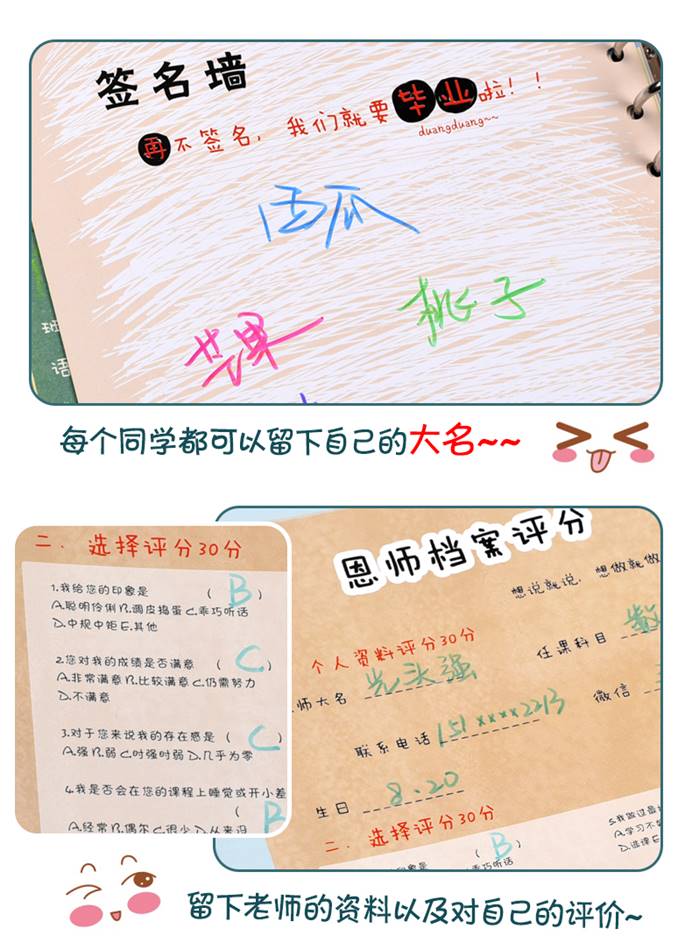 签名墙
再不签名，我们就要毕业啦！！
duangduang~~
西瓜
桃子
苹果
班
语
每个同学都可以留下自己的大名~~
二. 选择评分30分
1.我给您的印象是 （ B ）
A.聪明伶俐B.调皮捣蛋C.乖巧听话
D.中规中矩E.其他
2.您对我的成绩是否满意 （ C ）
A.非常满意B.比较满意C.仍需努力
D.不满意
3.对于您来说我的存在感是（ C ）
A.强B.弱C.时强时弱D.几乎为零
4.我是否会在您的课程上睡觉或开小差
（ B
A.经常B.偶尔C.很少D.从来没
恩师档案评分
想说就说, 想做就做
个人资料评分30分
任课科目 数
师大名 光头强
微信
联系电话 151xxxx2213
生日 8.20
二. 选择评分30分
象是 （ B ）
C.乖巧听话
5.我做过最
A.学习不
D.逃课E
留下老师的资料以及对自己的评价~